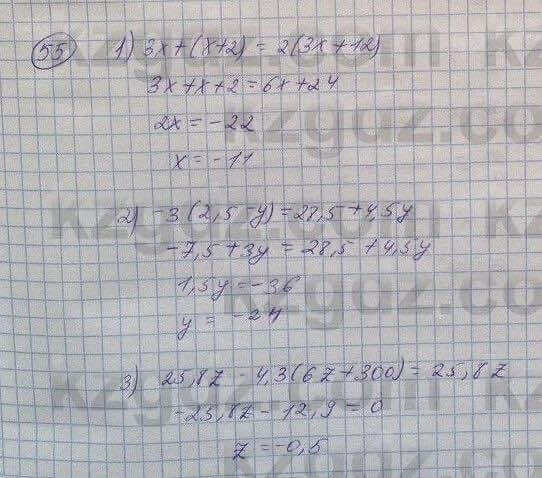 55 1) 3x+(x+2) = 2(3x+12)
3x+x+2=6x+24
2x=-22
x=-11
2) -3(2,5-y)=28,5+4,5y
-7,5+3y=28,5+4,5y
1,5y=-36
y=-24
3) 25,8z-4,3(6z+300)=25,8z
-25,8z-12,9=0
z=-0,5